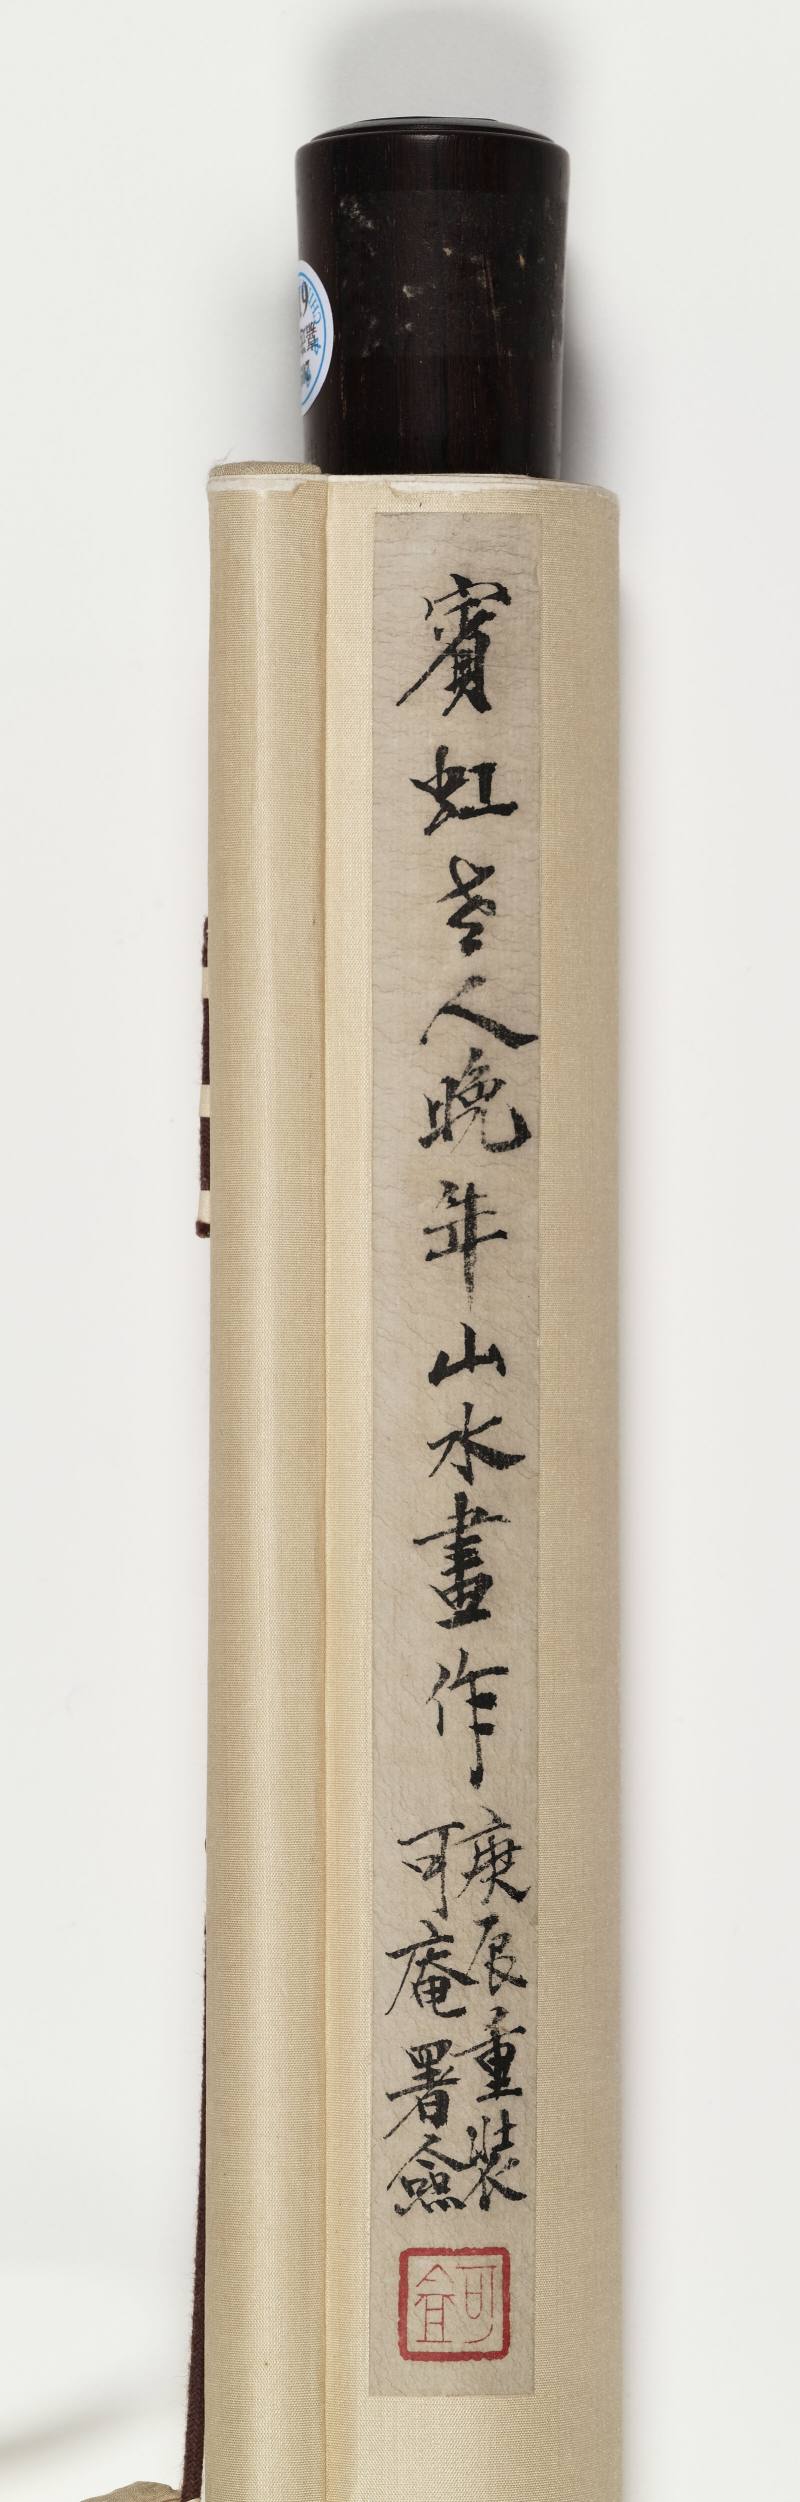 賓虹老人晚年山水畫作
庚辰重裝
可庵署簽